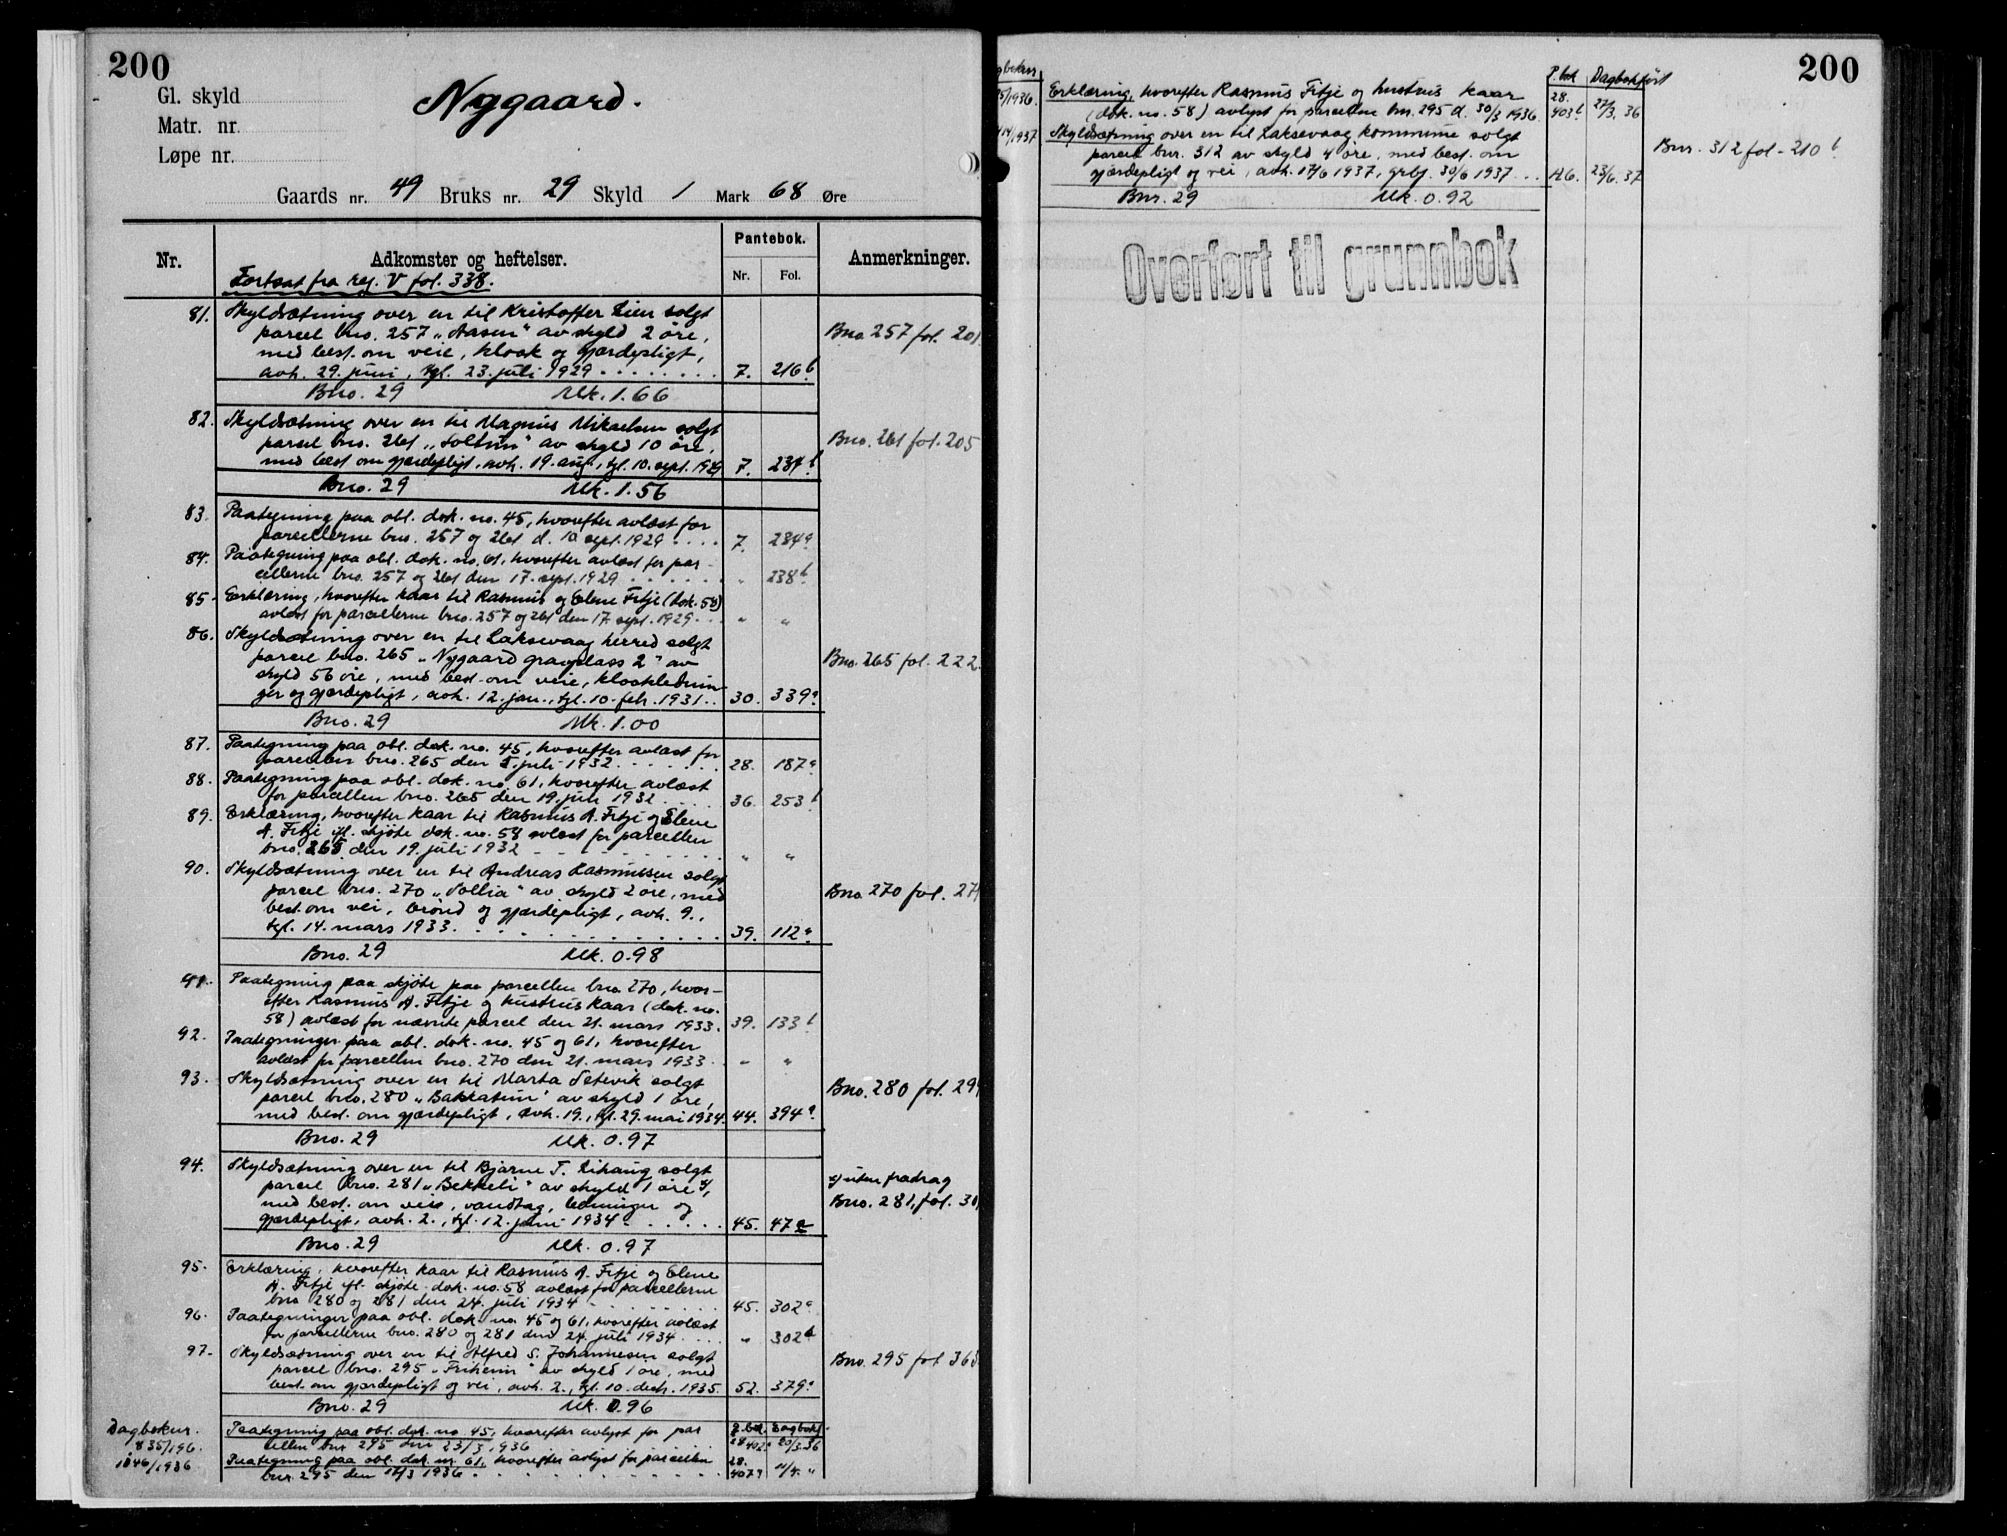 200
Gl. skyld
Matr. nr.
Løpe nr.
Nygaard.
Gaards nr. 49 Bruks nr. 29 Skyld 1 Mark 68 Øre
Nr.
Adkomster og heftelser.
Pantebok.
Nr. Fol.
Anmerkninger.
Fortsat fra reg. V fol. 338.
81. Skyldsætning over en til Kristoffer Lien solgt
parcel bno. 257 „Aasen" av skyld 2 öre,
med best. om veie, kloak og gjærdepligt,
avh. 29. juni, tgl. 23. juli 1929 7. 216b
Bno 257 fol. 201
Bno. 29 Mk. 1.66
82. Skyldsætning over en til Magnus Mikaelsen solgt
parcel bno. 261 „Soltun" av skyld 10 öre,
med best om gjærdepligt, avh. 19. aug., tgl. 10. sept. 1929 7. 234b
Bno. 261 fol. 205
Bno. 29 Mk. 1.56
83. Paategning paa obl. dok. no. 45, hvorefter avlæst for
parcellerne bno. 257 og 261 d. 10 sept. 1929 7. 234a
84. Paategning paa obl. dok. no. 61, hvorefter avlæst for par-
cellerne bno. 257 og 261 den 17. sept. 1929 " 238b
85. Erklæring, hvorefter kaar til Rasmus og Elene Fitje (dok. 58)
avlæst for parcellerne bno. 257 og 261 den 17. sept. 1929 " "
86. Skyldsætning over en til Laksevaag herred solgt
parcel bno. 265 „Nygaard gravplass 2" av
skyld 56 öre, med best. om veie, kloaklednin-
ger og gjærdepligt, avh. 12. jan., tgl. 10. feb. 1931 30. 339a
Bno. 265 fol. 222
Bno. 29 Mk. 1.00
87. Paategning paa obl. dok. no. 45, hvorefter avlæst for
parcellen bno. 265 den 5. juli 1932 28. 187a
88. Paategning paa obl. dok. no 61, hvorefter avlæst
for parcellen bno. 265 den 19. juli 1932 36. 253b
89. Erklæring, hvorefter kaar til Rasmus A. Fitje og Elene
A. Fitje ifl. skjöte dok. no. 58 avlæst for parcellen
bno. 265 den 19. juli 1932 " "
90. Skyldsætning over en til Andreas Rasmussen solgt
parcel bno. 270 „Sollia" av skyld 2 öre, med
best. om vei, brönd og gjærdepligt, avh. 9.,
tgl. 14. mars 1933 39. 112a
Bno 270 fol. 27
Bno. 29 Mk. 0.98
91. Paategning paa skjöte paa parcellen bno. 270, hvor-
efter Rasmus A. Fitje og hustrus kaar (dok. no.
58) avlæst for nævnte parcel den 21. mars 1933. 39. 133b
92. Paategninger paa obl. dok. no. 45 og 61, hvorefter
avlæst for parcellen bno. 270 den 21. mars 1933 " "
93. Skyldsætning over en til Marta Setevik solgt
parcel bno. 280 „Bakketun" av skyld 1 öre,
med best. om gjærdepligt, avh. 19., tgl. 29. mai 1934. 44. 394a
Bno. 280 fol. 29
Bno. 29 Mk. 0.97
94. Skyldsætning over en til Bjarne T. Lihaug solgt
parcel bno. 281 „Bekkeli" av skyld 1 öre x),
med best. om veie, vandtag, ledninger og
gjærdepligt, avh. 2., tgl. 12. juni 1934 45. 47a
x) uten fradrag
Bno. 281, fol. 30
Bno. 29 Mk. 0.97
95. Erklæring, hvorefter kaar til Rasmus A. Fitje og Elene
A. Fitje ifl. skjöte dok. no. 58 avlæst for parcellerne
bno 280 og 281 den 24. juli 1934 45. 302a
96. Paategninger paa obl. dok. no. 45 og 61, hvorefter avlæst
for parcellerne bno. 280 og 281 den 24. juli 1934 " 302b
97. Skyldsætning over en til Alfred S. Johannesen solgt
parcel bno. 295 „Friheim" av skyld 1 öre, med
best. om gjærdepligt og vei, avh. 2., tgl. 10. desb. 1935. 52. 379a
Bno. 295 fol 365
Bno. 29 Mk. 0.96
Dagboknr. P.bok. Dagbokf.
835/196. Paategning paa obl. dok. no 45, hvorefter avlyst for par
cellen bnr 295 den 23/3 1936 28 402a 20/3.36
1046/1936 Paategning paa obl. dok. nr. 61, hvorefter avlyst for parcellen
bnr. 295 den 1936 28. 407a 11/4. "
200
gboknr P.bok Dagbokført
5/1936. Erklæring, hvorefter Rasmus Fitje og hustrus kaar
(dok. no. 58) avlyst for parcellen bnr. 295 d. 30/3 1936. 28. 403b 27/3. 36
14/1937 Skyldsætning over en til Laksevaag kommune solgt
parcel bnr. 312 av skyld 4 öre, med best. om
gjærdepligt og vei, avh. 17/6 1937, grbf. 30/6 1937 A6. 23/6. 37
Bnr. 312 fol. 210b
Bnr. 29 Mk. 0.92
Overført til grunnbok